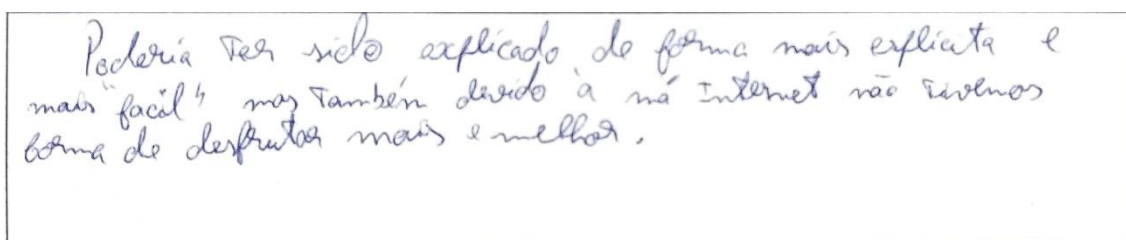 Poderia Ter sido explicado de forma mais explicita e
mais "facil" mas Também devido à má Internet não Tivemos
forma de desfrutar mais e melhor.